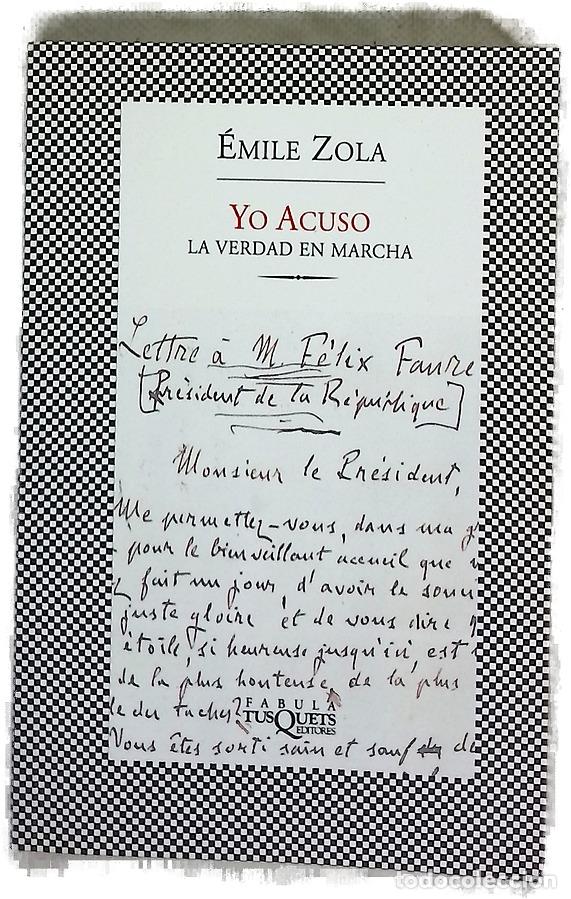 ÉMILE ZOLA
YO ACUSO
LA VERDAD EN MARCHA
Lettre à M. Félix Faure
[Président de la République]
Monsieur le Président,
Me permettez-vous, dans ma gr
pour le bienveillant accueil que
fait un jour, d'avoir le souci
juste gloire et de vous dire q
étoile, si heureuse jusqu'ici, est
de la plus honteuse, de la plus
le des taches?
FABULA
TUSQUETS
EDITORES
Vous êtes sorti sain et sauf de
todocoleccion